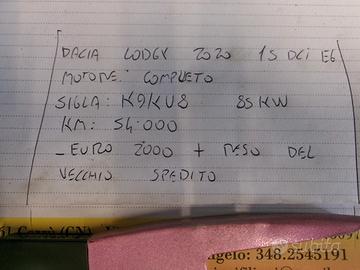 DACIA LODGY 2020 1S DCI E6
MOTORE: COMPLETO
SIGLA: K9KU8 85KW
KM: 54.000
- EURO 2000 + RESO DEL
VECCHIO SPEDITO
angelo: 348.2545191